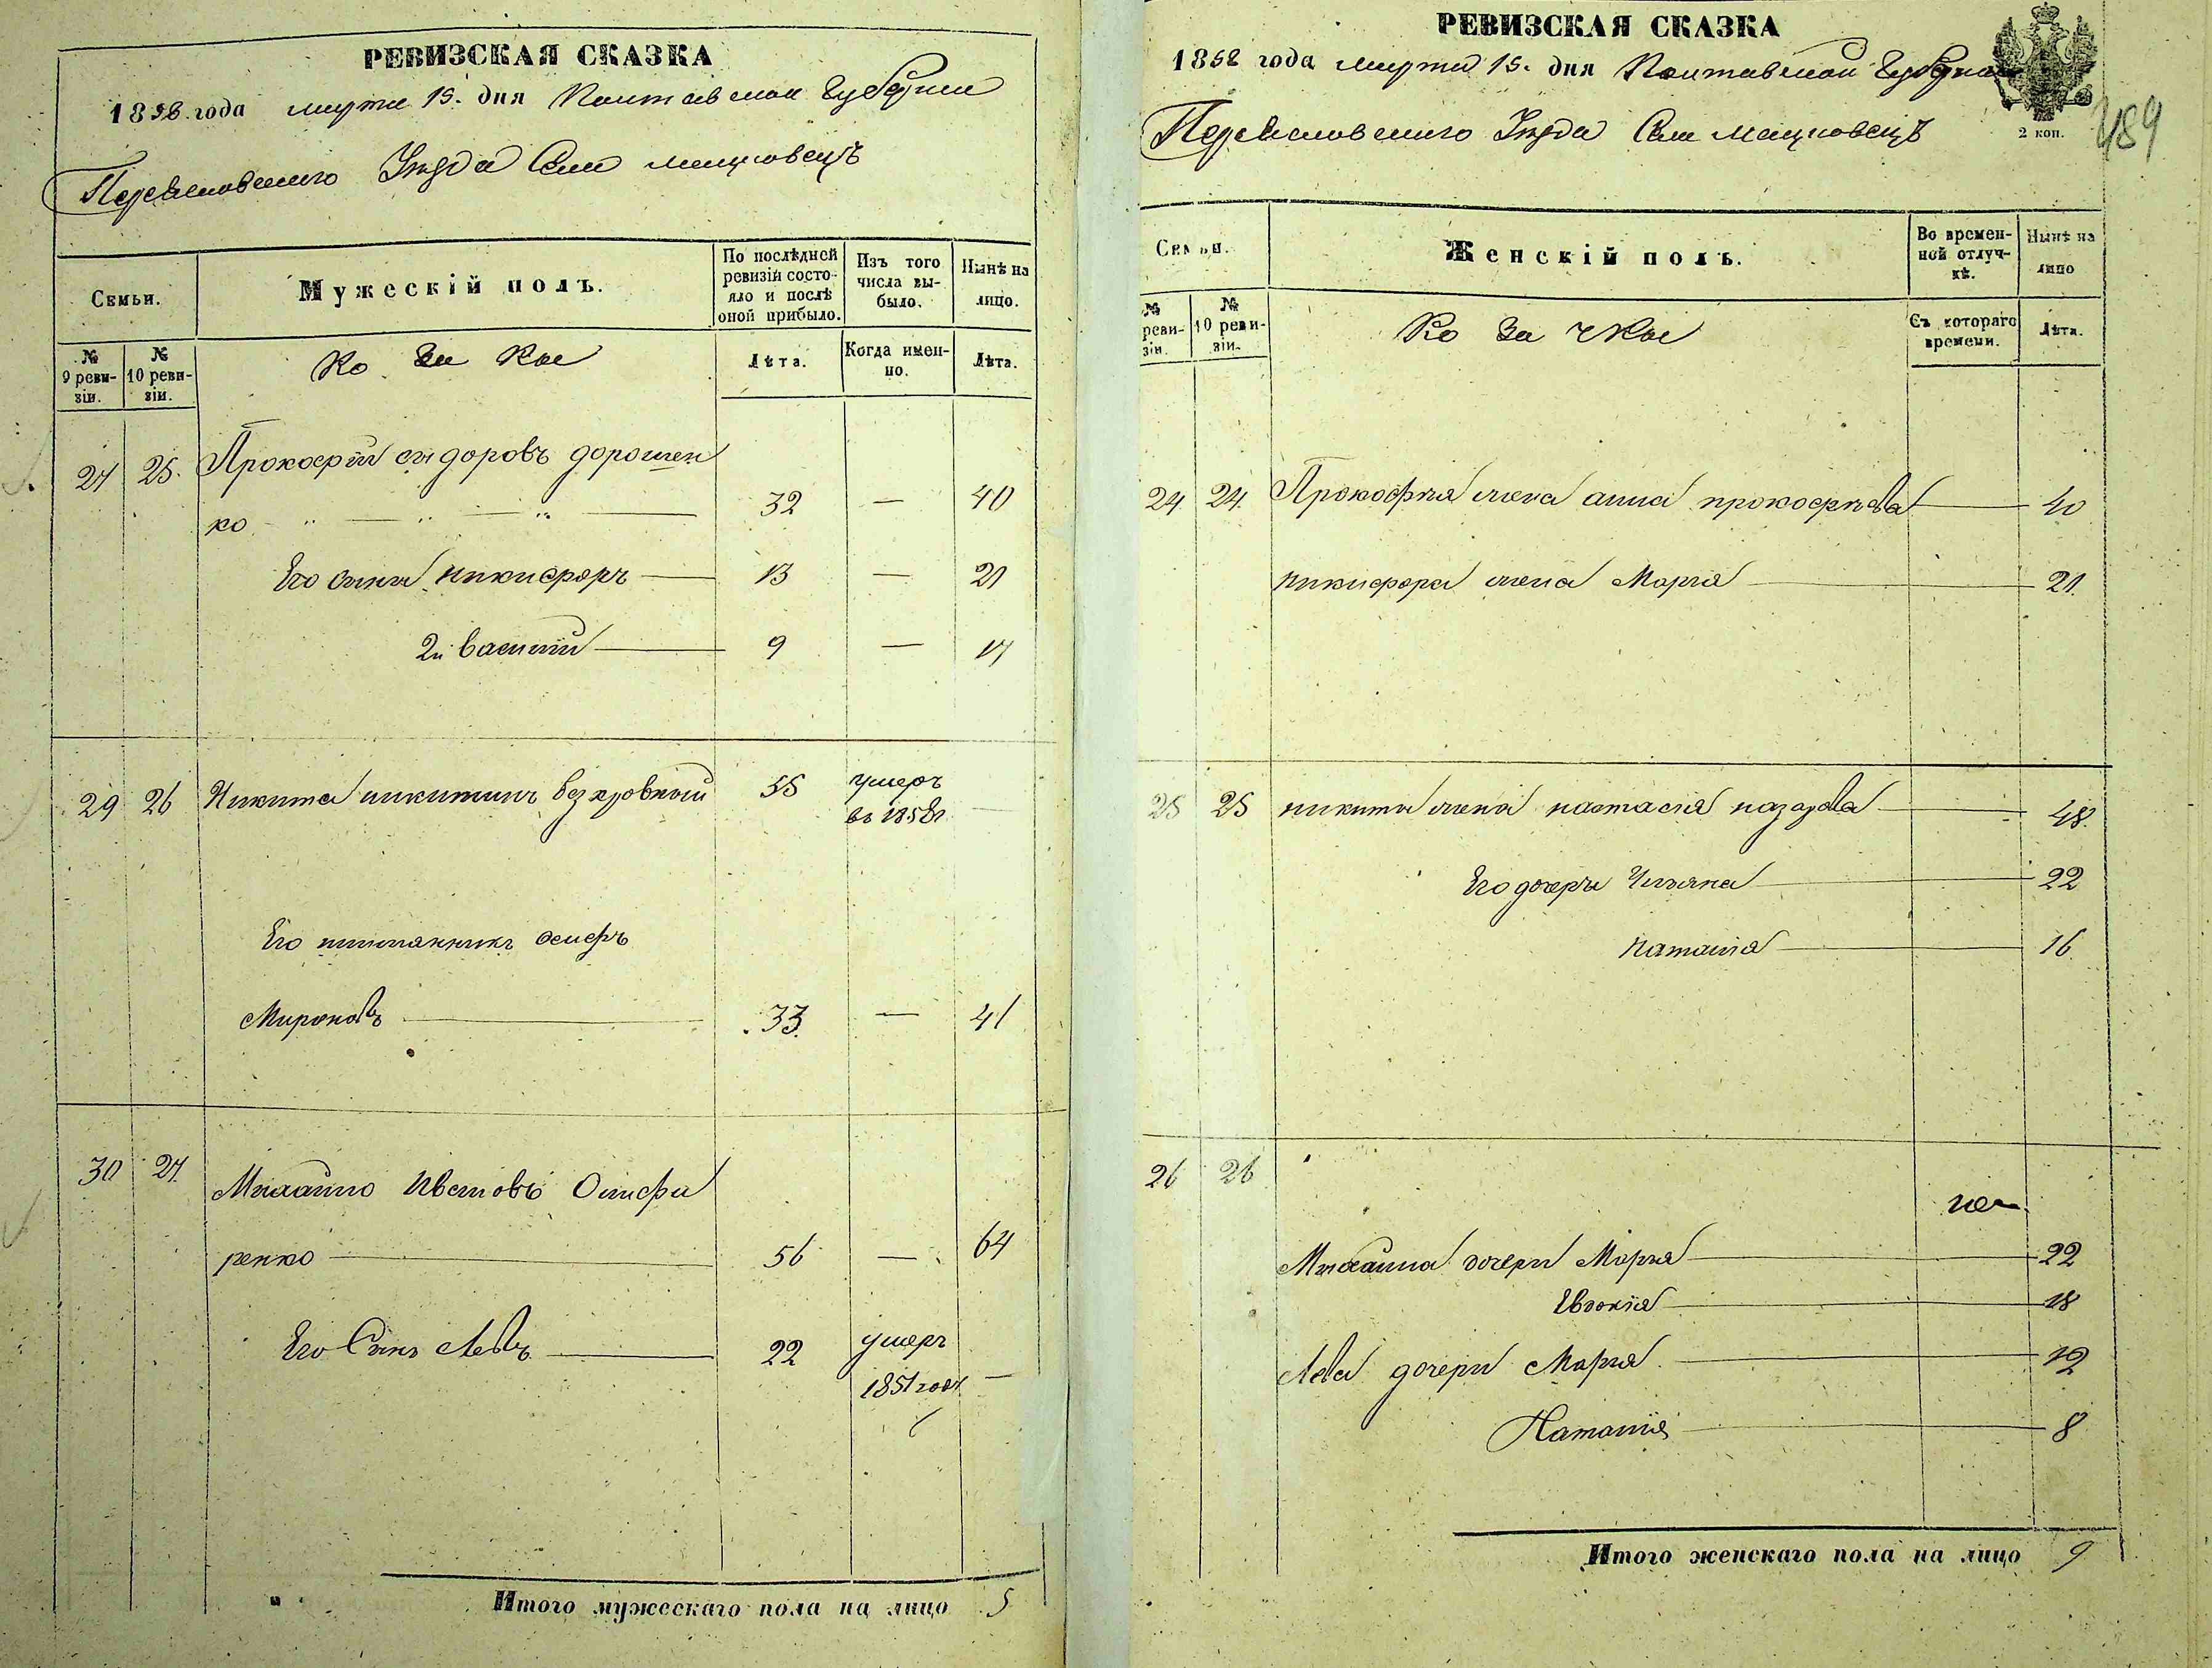 РЕВИЗСКАЯ СКАЗКА
1858 года марта 15. дня Полтавской Губернии
Переяславского Уезда Села мацковецъ
Семьи.
Мужескій полъ.
По послѣдней ревизіи состояло и послѣ оной прибыло.
Изъ того числа выбыло.
Нынѣ на лицо.
№ 9 ревизіи.
№ 10 ревизіи.
Козаки
Лѣта.
Когда именно.
Лѣта.
27 25. Прокофій сидоровъ дорошен
ко 32 — 40
Его сыны никифоръ 13 — 21
2й василій 9 — 17
29 26 Никита никитинъ безкровный 55 умеръ
въ 1858г —
Его племянникъ осипъ
Мироновъ 33. — 41
30 27. Михайло Ивановъ
ренко 56 — 64
Его Сынъ Левъ 22 умеръ
1851 года —
Итого мужескаго пола на лицо 5
РЕВИЗСКАЯ СКАЗКА
1858 года марта 15. дня Полтавской Губернии
2 коп.
489
Переяславского Уезда Села мацковецъ
Семьи.
Женскій полъ.
Во временной отлучкѣ.
Нынѣ на лицо
№ ревизіи.
№ 10 ревизіи.
Козачки
Съ котораго времени.
Лѣта.
24 24. Прокофия жена анна прокофьева 40
никифора жена Марія 21.
25 25 никиты жена настасія назарова 48.
Его дочери Ульяна 22
наталія 16
26 26
Михаила дочери Марья 22
Евдокія 18
Лева дочери Марья 12
Наталія 8
Итого женскаго пола на лицо 9